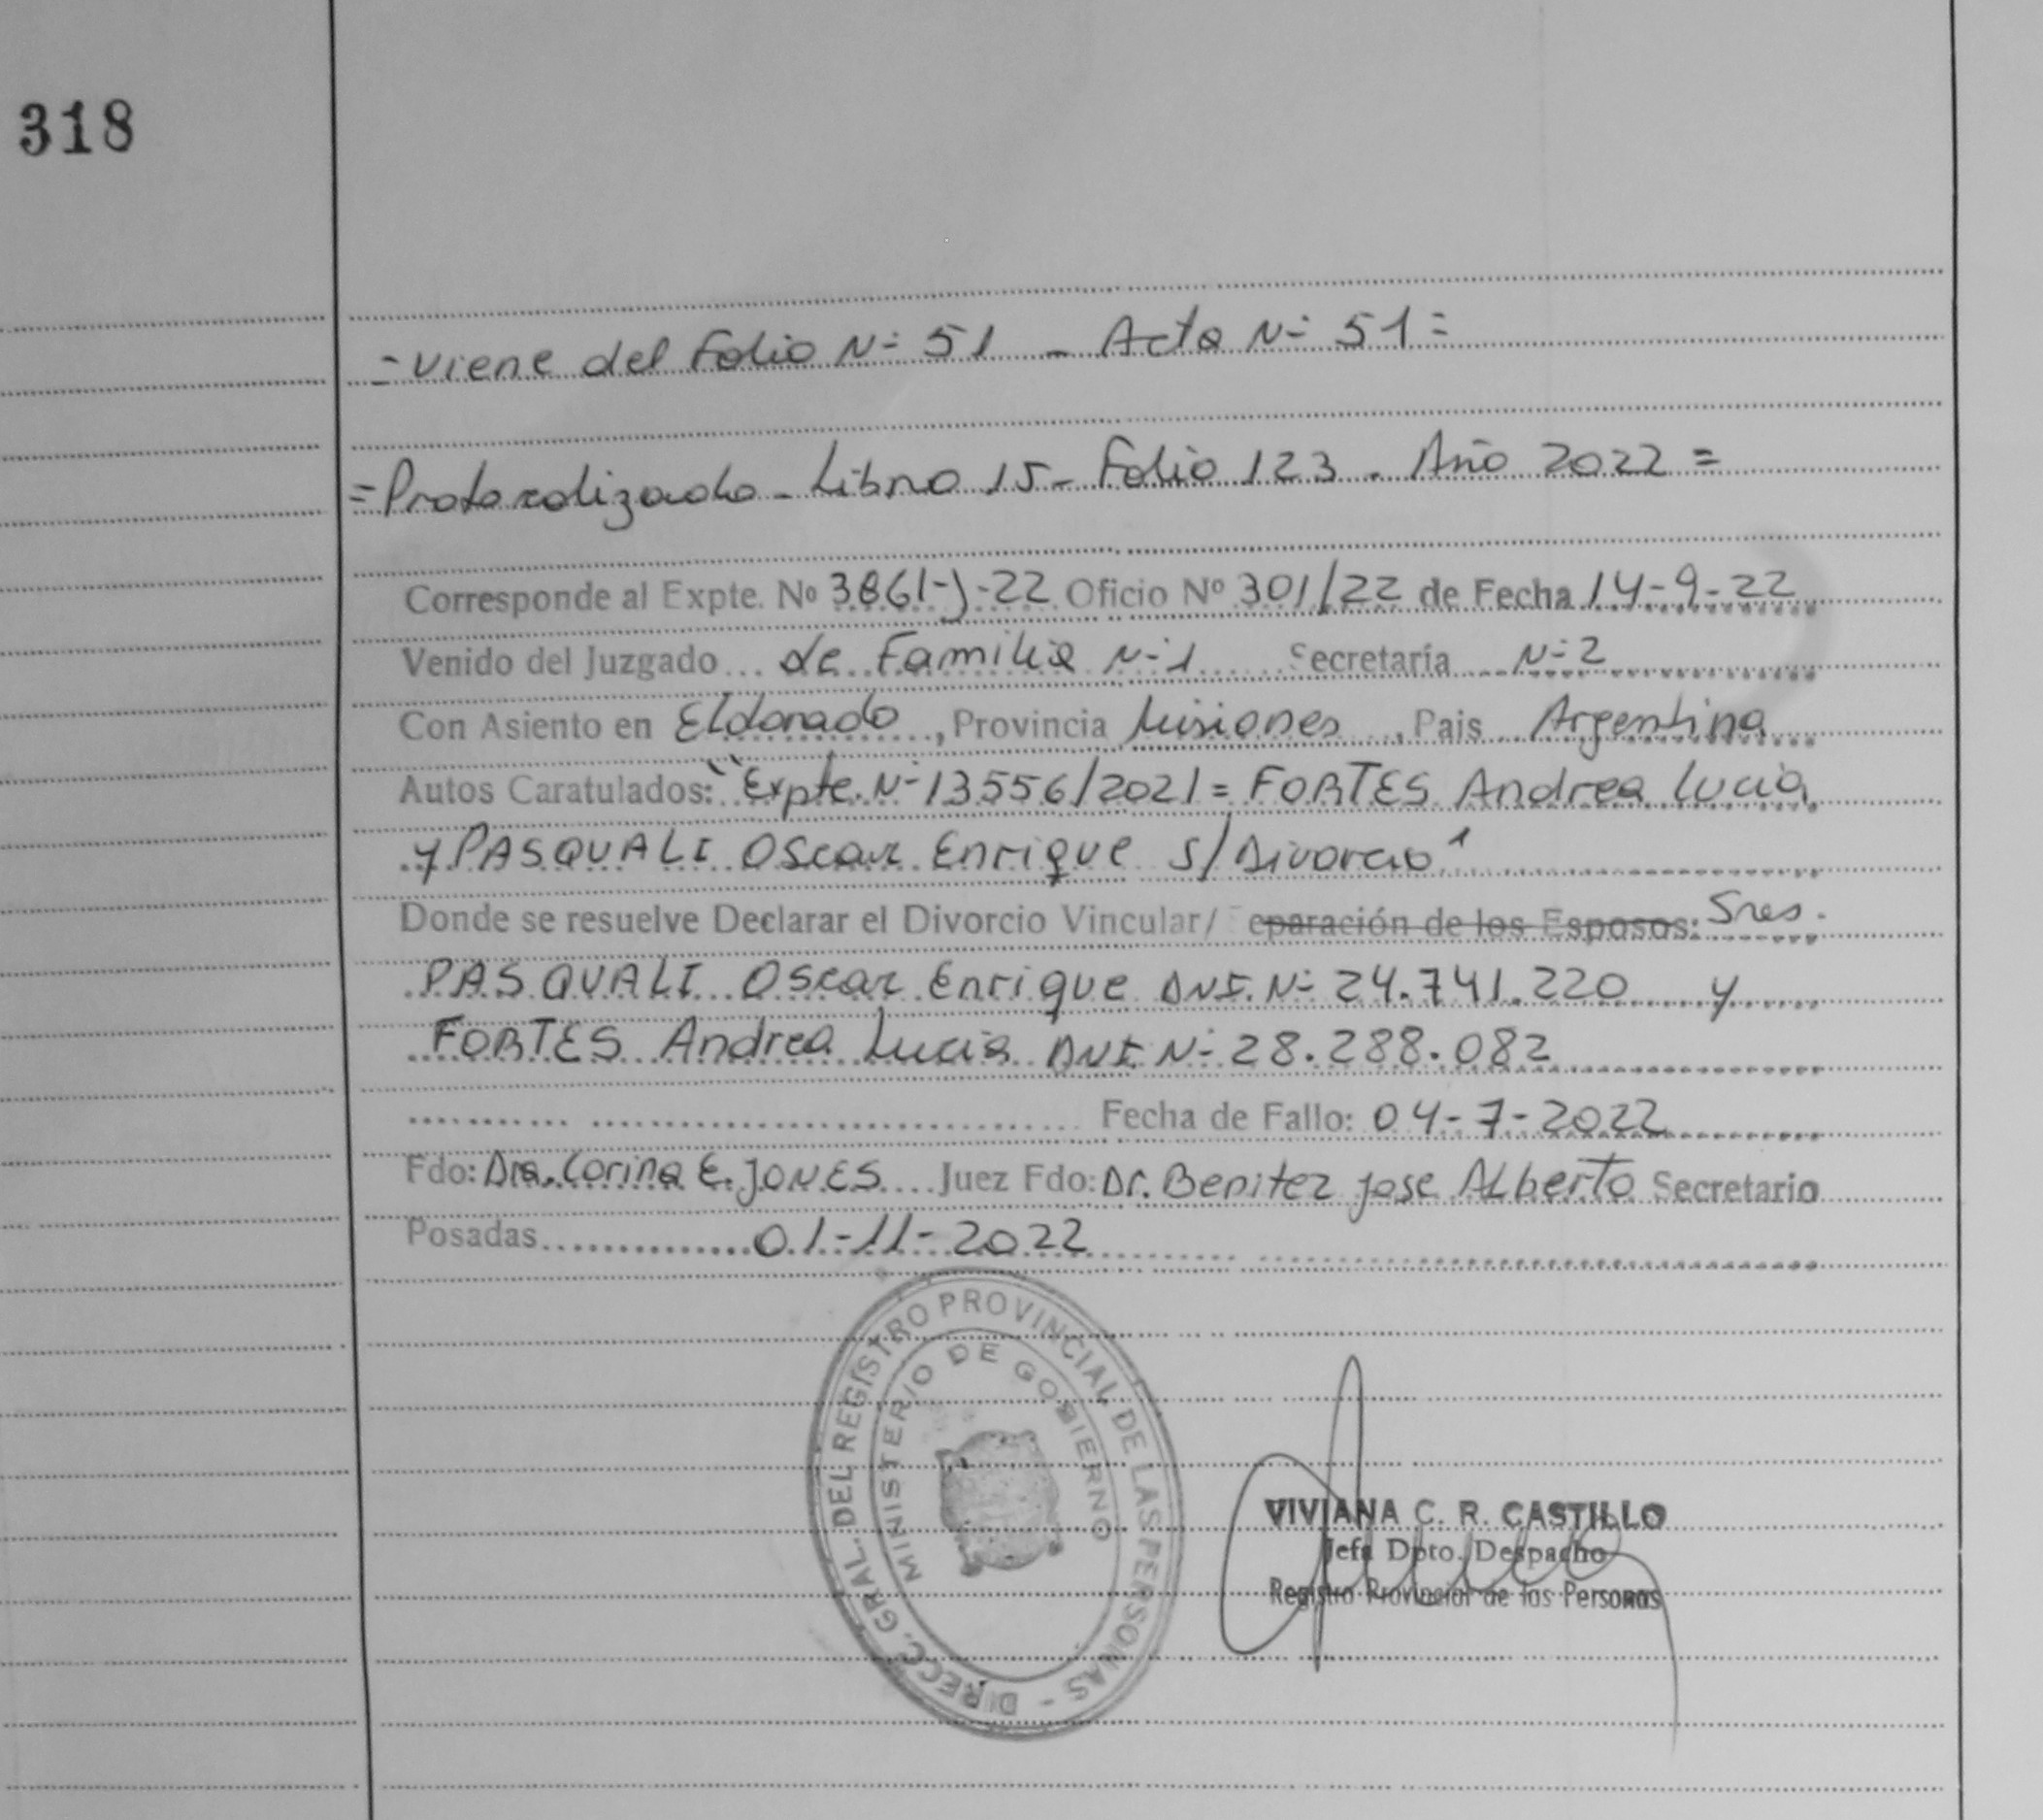 318
= viene del Folio Nº 51 - Acta Nº 51 =
= Protocolizado - Libro 15 - Folio 123 - Año 2022 =
Corresponde al Expte. Nº 3861-J-22 Oficio Nº 301/22 de Fecha 14-9-22
Venido del Juzgado de Familia Nº 1 Secretaría Nº 2
Con Asiento en Eldorado, Provincia Misiones, Pais Argentina
Autos Caratulados: "Expte. Nº 13556/2021 = FORTES Andrea Lucia
y PASQUALI Oscar Enrique S/Divorcio"
Donde se resuelve Declarar el Divorcio Vincular/ eparación de los Esposos: Sres.
PASQUALI Oscar Enrique DNI. Nº 24.741.220 y
FORTES Andrea Lucia DNI. Nº 28.288.082
Fecha de Fallo: 04-7-2022
Fdo: Dra. Corina E. JONES Juez Fdo: Dr. Benitez Jose ALberto Secretario
Posadas 01-11-2022
DIRECC. GRAL. DEL REGISTRO PROVINCIAL DE LAS PERSONAS -
MINISTERIO DE GOBIERNO
VIVIANA C. R. CASTILLO
Jefa Dpto. Despacho
Registro Provincial de las Personas